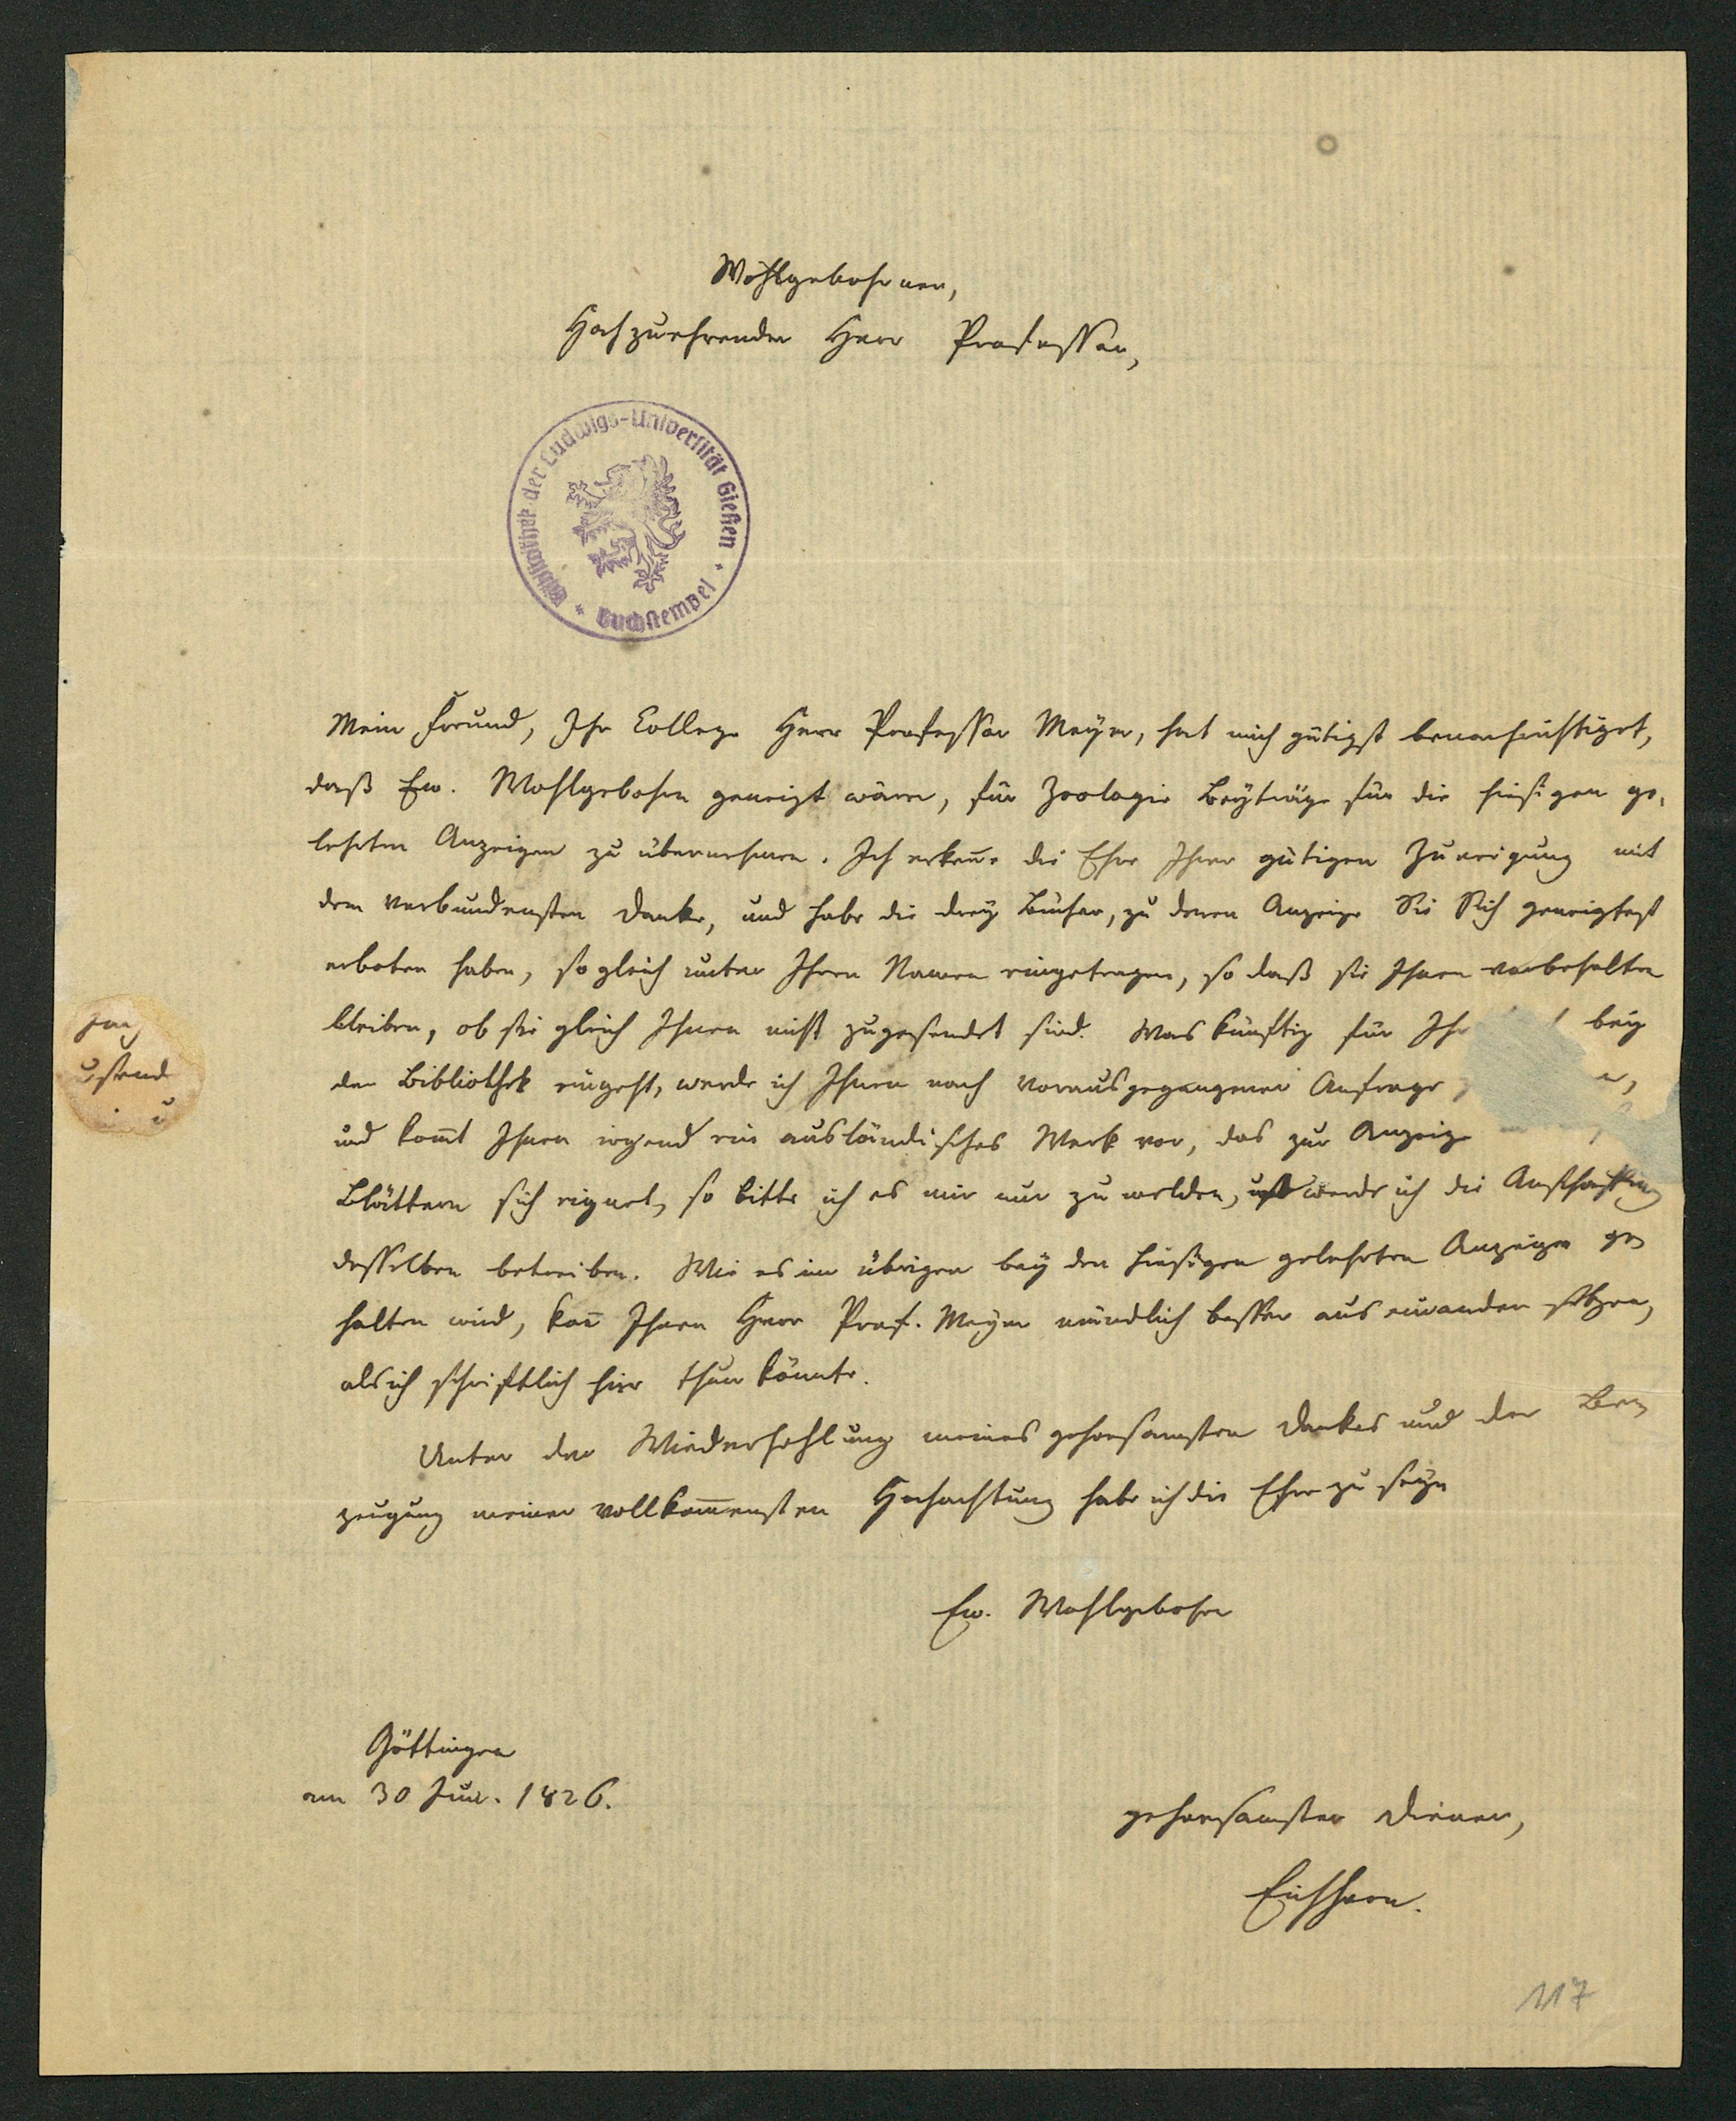 Wohlgebohrner,
Hochzuehrender Herr Professor,
Bibliothek der Ludwigs-Universität Gießen
* Buchstempel *
Mein Freund, Ihr College Herr Professor Meyer, hat mich gütigst benachrichtiget,
daß Ew. Wohlgebohrn geneigt wären, für Zoologie Beyträge für die hiesigen ge-
lehrten Anzeigen zu übernehmen. Ich erkeñe die Ehre Ihrer gütigen Zuneigung mit
dem verbundensten Danke, und habe die drey Bücher, zu deren Anzeige Sie Sich geneigtest
erboten haben, sogleich unter Ihren Namen eingetragen, so daß sie Ihnen vorbehalten
bleiben, ob sie gleich Ihnen nicht zugesendet sind. Was künftig für Ihr bey
der Bibliothek eingeht, werde ich Ihnen nach vorausgegangener Anfrage
zusend
und kom̃t Ihnen irgend ein ausländisches Werk vor, das zur Anzeige
Blättern sich eignet, so bitte ich es mir nur zu melden, werde ich die Anschaffung
desselben betreiben. Wie es im übrigen bey den hiesigen gelehrten Anzeigen ge-
halten wird, kañ Ihnen Herr Prof. Meyer mündlich besser aus einander setzen,
als ich schriftlich hier thun könnte.
Unter der Wiederhohlung meines gehorsamsten Dankes und der Be-
zeugung meiner vollkom̃ensten Hochachtung habe ich die Ehre zu seyn
Ew. Wohlgebohrn
Göttingen
am 30 Jun. 1826.
gehorsamster Diener,
Eichhorn.
117